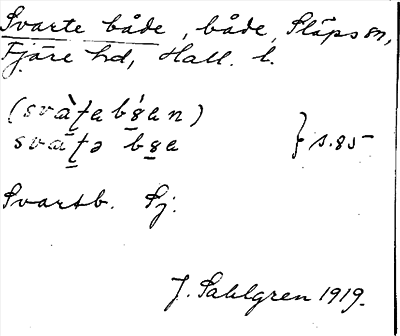 Svarte både, både, Släps sn,
Fjäre hd, Hall. l.
(svàʈa bɞ́an)
svaʈə bɞa } s. 85
Svartb. Sj.
J. Sahlgren 1919.